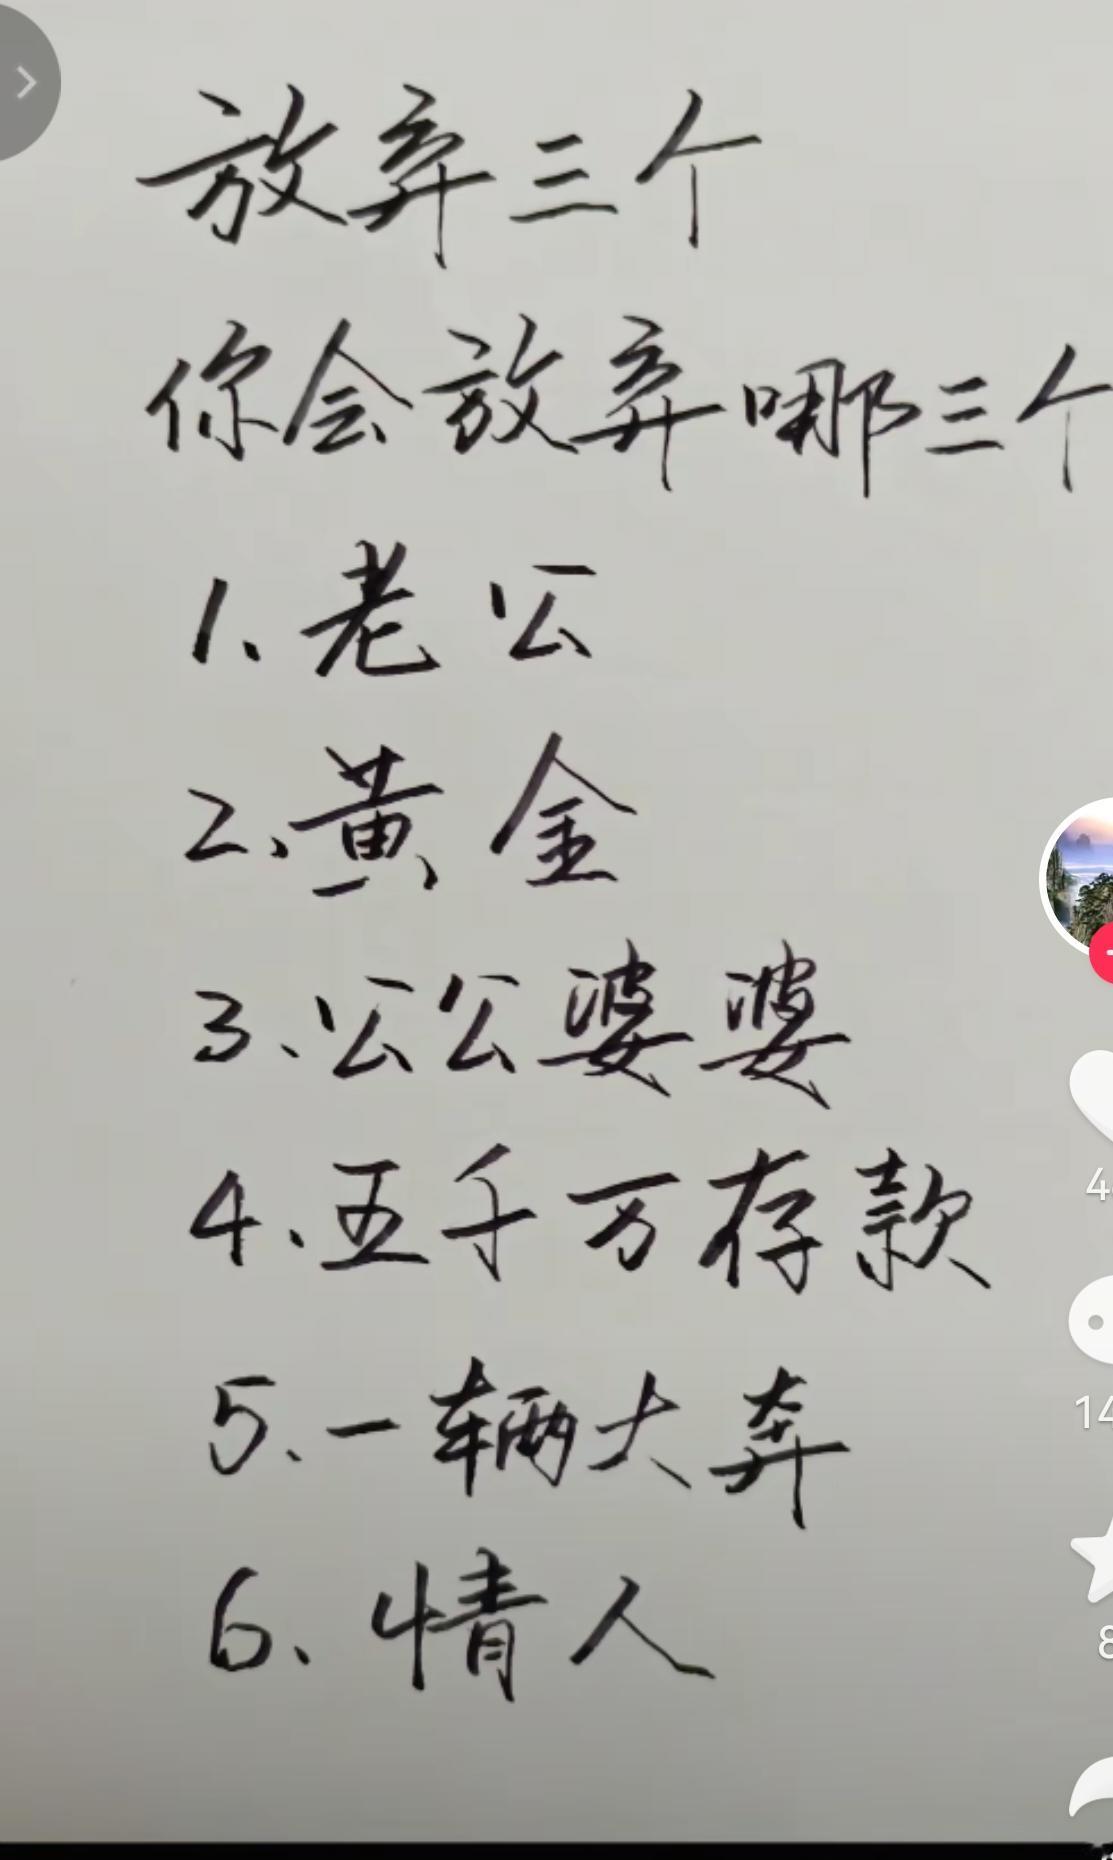 放弃三个
你会放弃哪三个
1、老公
2、黄金
3、公公婆婆
4、五千万存款
5、一辆大奔
6、情人